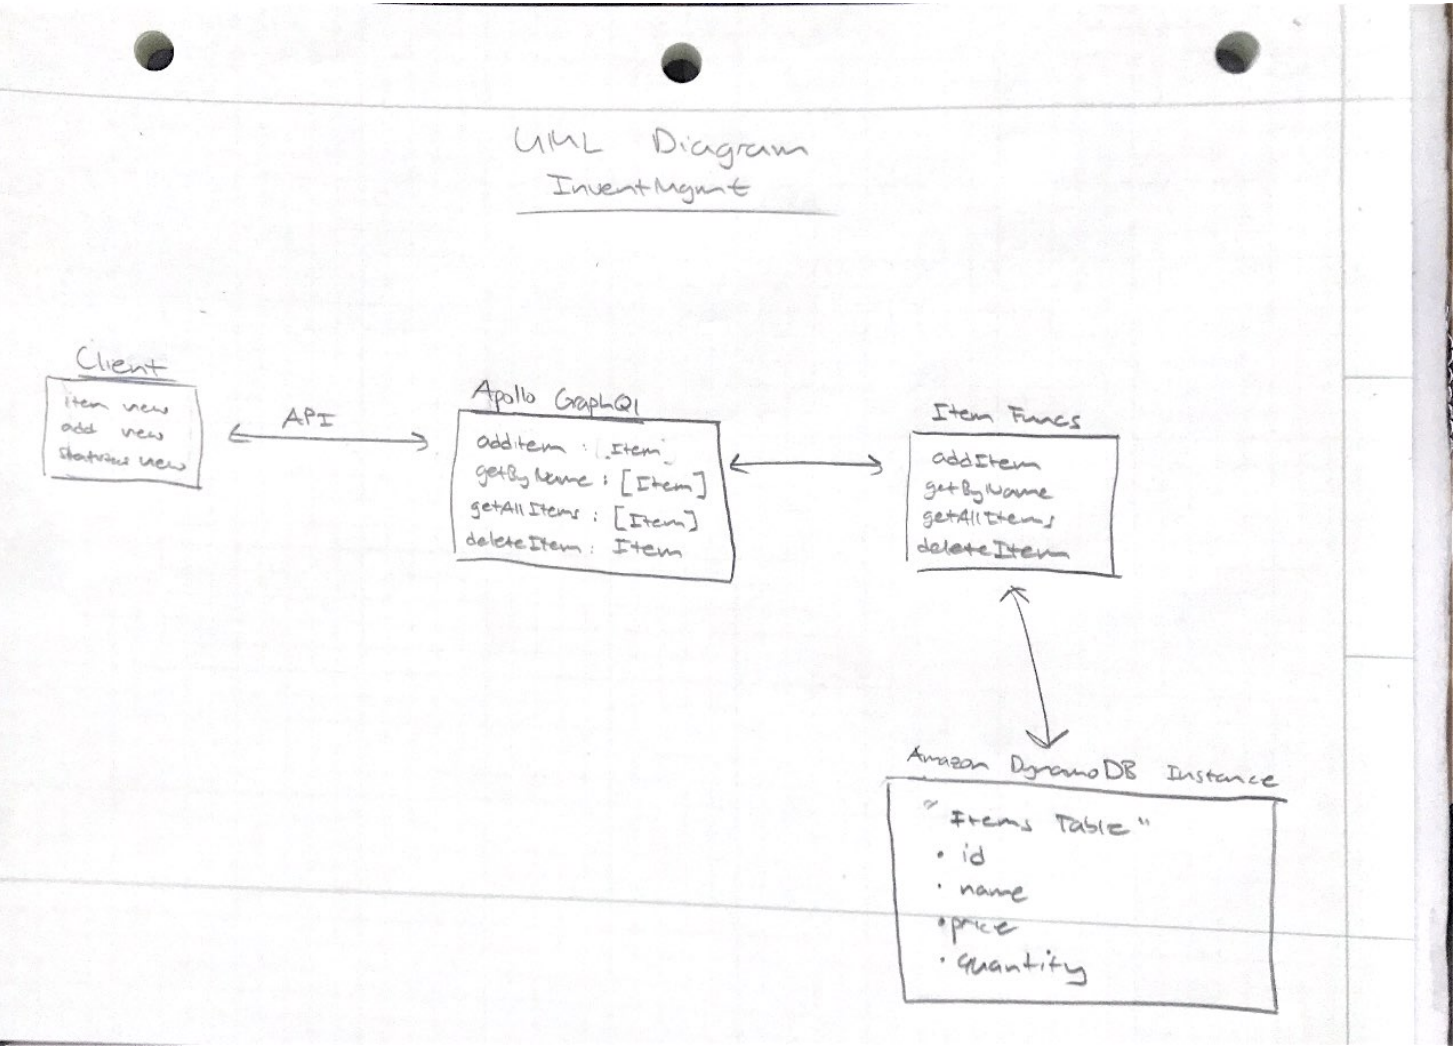 UML Diagram
InventMgmt
Client
item view
add view
view
API
Apollo GraphQl
additem : [Item]
getByName : [Item]
getAllItems : [Item]
deleteItem : Item
Item Funcs
addItem
getByName
getAllItems
deleteItem
Amazon DynamoDB Instance
"Items Table"
• id
• name
• price
• quantity